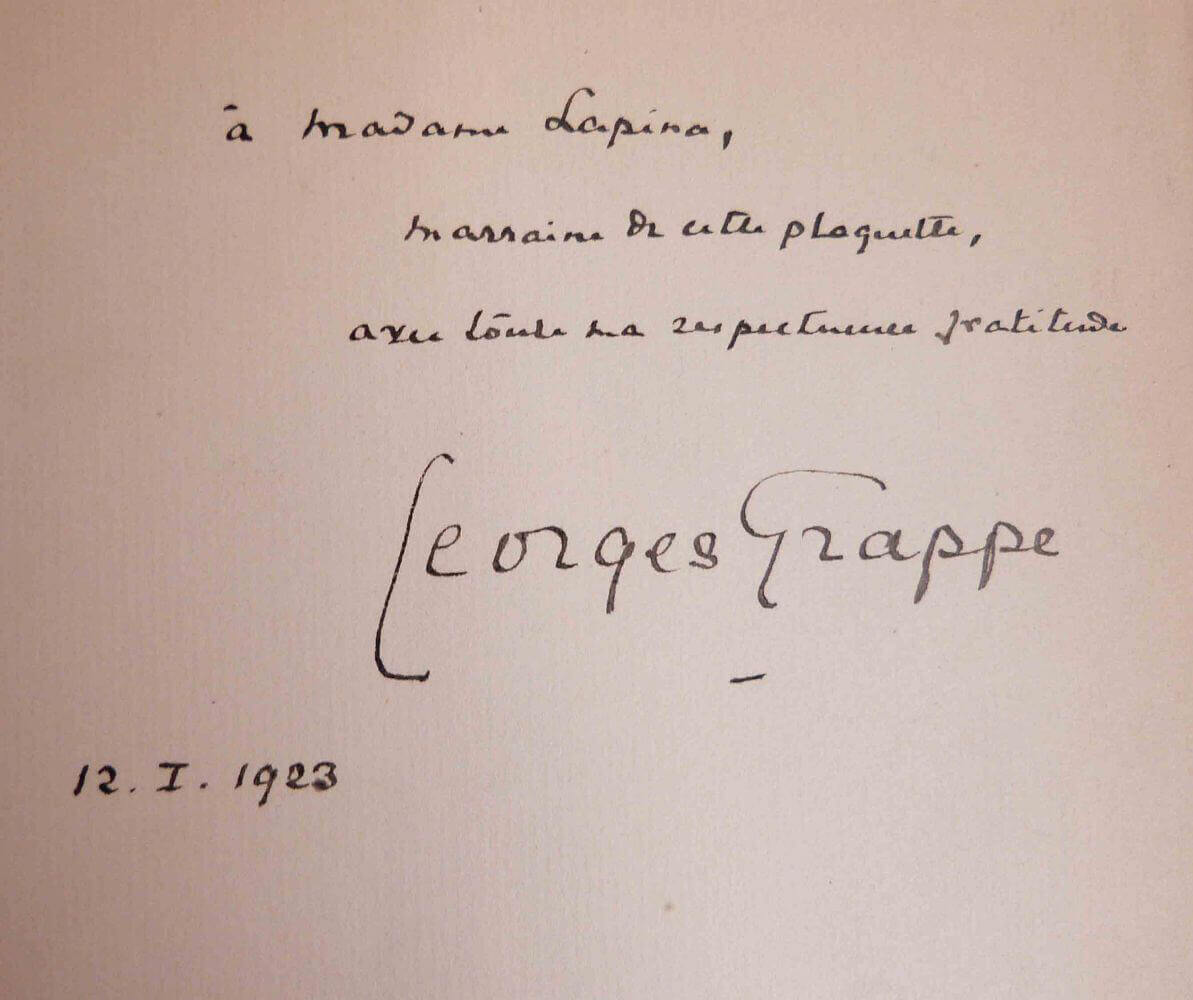 à Madame Lapina,
marraine de cette plaquette,
avec toute ma respectueuse gratitude
Georges Grappe
12. I. 1923